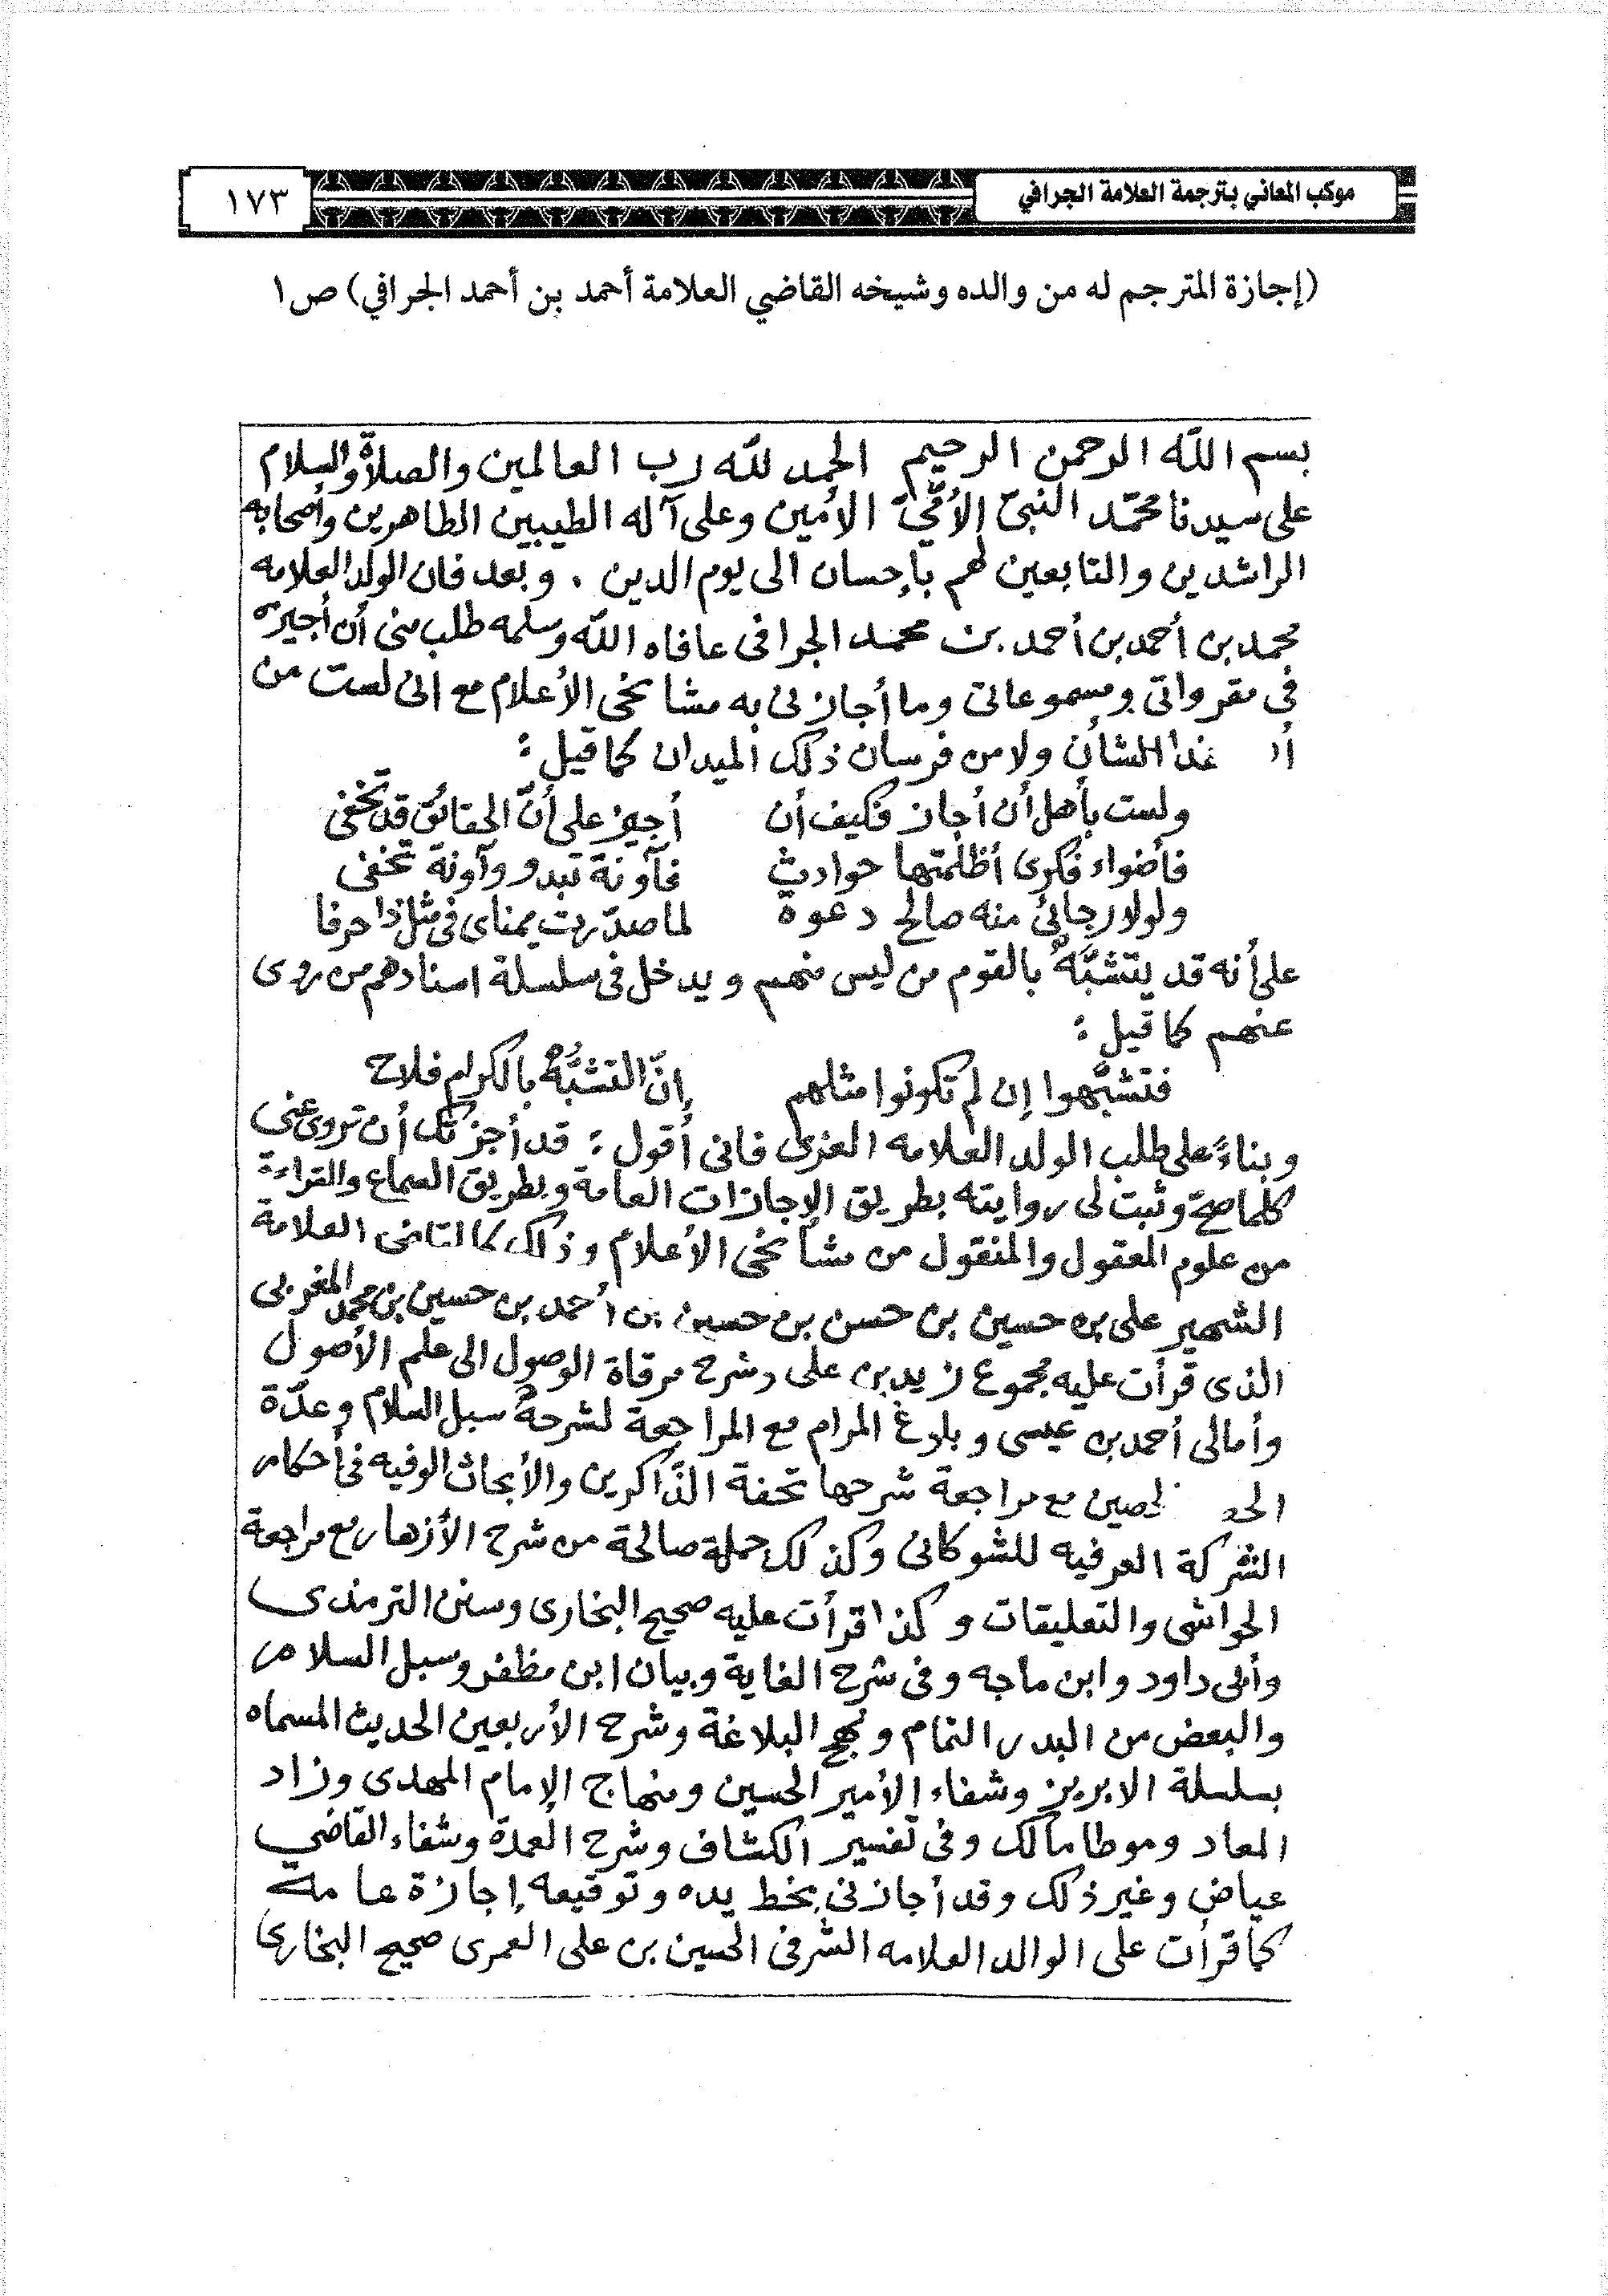 موكب المعاني بترجمة العلامة الجرافي
١٧٣
(إجازة المترجم له من والده وشيخه القاضي العلامة أحمد بن أحمد الجرافي) ص ١
بسم الله الرحمن الرحيم الحمد لله رب العالمين والصلاة والسلام
على سيدنا محمّد النبيّ الأمّيّ الأمين وعلى آله الطيبين الطاهرين وأصحابه
الراشدين والتابعين لهم بإحسان الى يوم الدين . وبعد فان الولد العلامه
محمد بن أحمد بن أحمد بن محمد الجرافى عافاه الله وسلمه طلب منى أن أجيزه
فى مقرواتى ومسموعاتى وما أجاز لى به مشائخى الأعلام مع انى لست من
الشأن ولا من فرسان ذلك الميدان كما قيل :
ولست بأهل أن أجاز فكيف أن أجيز على أنّ الحقائق قد تخفى
فأضواء فكرى أظلمتها حوادث فآونة تبدو وآونة تخفى
ولولا رجائى منه صالح دعوة لما صدّرت يمناى فى مثل ذا حرفا
على أنه قد يتشبَّهُ بالقوم من ليس منهم ويدخل فى سلسلة اسنادهم من روى
عنهم كما قيل :
فتشبَّهوا إن لم تكونوا مثلهم إنّ التشبُّهَ بالكرام فلاح
وبناءً على طلب الولد العلامه العزى فانى أقول : قد أجزتك أن تروى عنى
كلما صحّ وثبت لى روايته بطريق الإجازات العامة وبطريق السماع والقراءة
من علوم المعقول والمنقول من مشائخى الأعلام وذلك كالقاضى العلامة
الشهير على بن حسين بن حسن بن حسين بن أحمد بن حسين بن محمد المغربى
الذى قرأت عليه مجموع زيد بن على وشرح مرقاة الوصول الى علم الأصول
وأمالى أحمد بن عيسى وبلوغ المرام مع المراجعة لشرحه سبل السلام وعدّة
مع مراجعة شرحها تحفة الذّاكرين والأبحاث الوفيه فى أحكام
الشركة العرفيه للشوكانى وكذلك جملة صالحة من شرح الأزهار مع مراجعة
الحواشى والتعليقات وكذا قرأت عليه صحيح البخارى وسنن الترمذى
وأبى داود وابن ماجه وفى شرح الغاية وبيان ابن مظفر وسبل السلام
والبعض من البدر التمام ونهج البلاغة وشرح الأربعين الحديث المسماه
بسلسلة الابريز وشفاء الأمير الحسين ومنهاج الإمام المهدى وزاد
المعاد وموطا مالك وفى تفسير الكشاف وشرح العمدة وشفاء القاضي
عياض وغير ذلك وقد أجازنى بخط يده وتوقيعه إجازة عامة
كما قرأت على الوالد العلامه الشرفى الحسين بن على العمرى صحيح البخارى